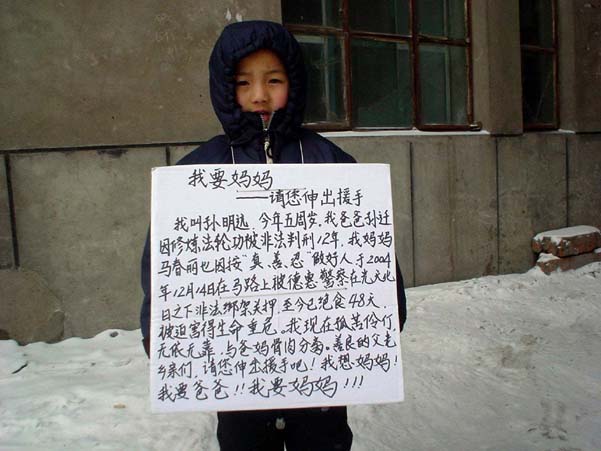 我要妈妈
——请您伸出援手
我叫孙明远，今年五周岁。我爸爸孙迁
因修炼法轮功被非法判刑12年，我妈妈
马春丽也因按"真、善、忍"做好人于2004
年12月14日在马路上被德惠警察在光天化
日之下非法绑架关押，至今已绝食48天
被迫害得生命重危。我现在孤苦伶仃，
无依无靠，与爸妈骨肉分离。善良的父老
乡亲们，请您伸出援手吧！我想妈妈！
我要爸爸！！我要妈妈！！！